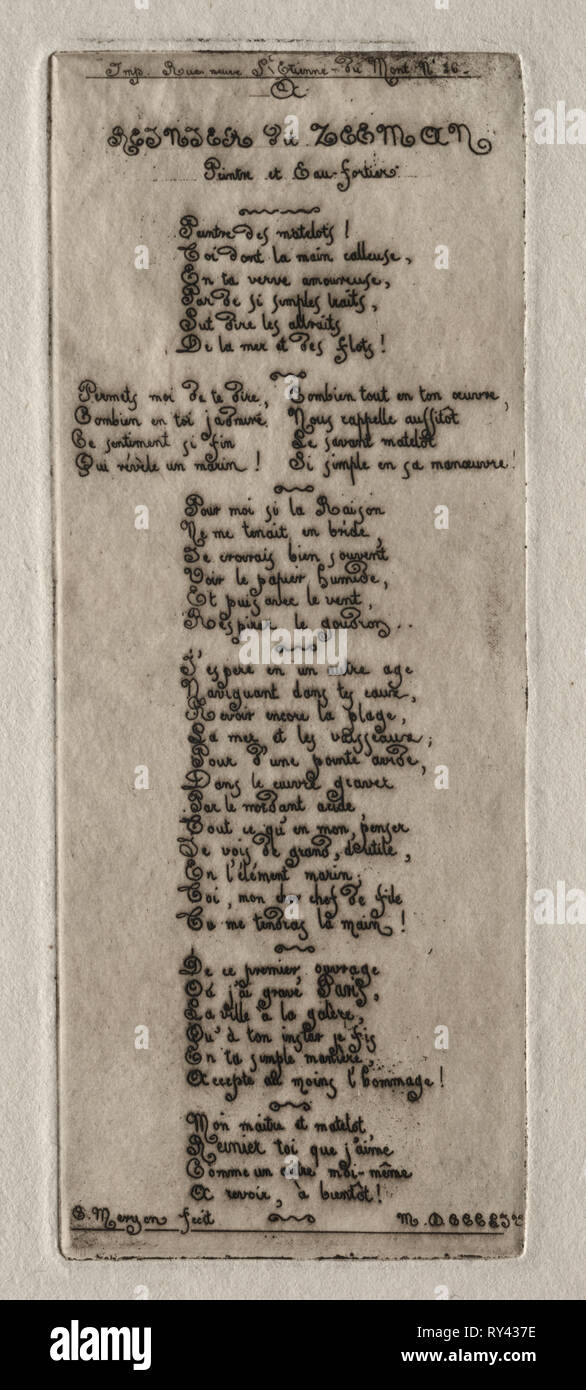 Imp. Rue neuve St Etienne-du Mont No 26-
A
REINIER dit ZEEMAN
Peintre et Eau-fortier.
Peintre des matelots !
Toi dont la main calleuse,
En ta verve amoureuse,
Par de si simples traits,
Sut dire les attraits
De la mer et des flots !
Permets moi de te dire,
Combien en toi j'admire
Ce sentiment si fin
Qui révèle un marin !
Combien tout en ton œuvre,
Nous rappelle aussitot
Le savant matelot
Si simple en sa manœuvre !
Pour moi si la Raison
Ne me tenait en bride,
Je croirais bien souvent
Voir le papier humide,
Et puis avec le vent,
Respirer le goudron..
J'espère en un autre age
Naviguant dans tes eaux,
Revoir encore la plage,
La mer et les vaisseaux ;
Pour d'une pointe avide,
Dans le cuivre graver
Par le mordant acide
Tout ce qu'en mon penser
Je vois de grand, d'utile,
En l'élément marin ;
Toi, mon chef de file
Tu me tendras la main !
De ce premier ouvrage
Où j'ai gravé Paris,
La ville à la galère,
Qu'à ton instar je fis
En ta simple manière,
Accepte au moins l'hommage !
Mon maitre et matelot
Reinier toi que j'aime
Comme un autre moi-même
A revoir, à bientôt !
C. Meryon fecit
alamy
Image ID: RY437E
www.alamy.com